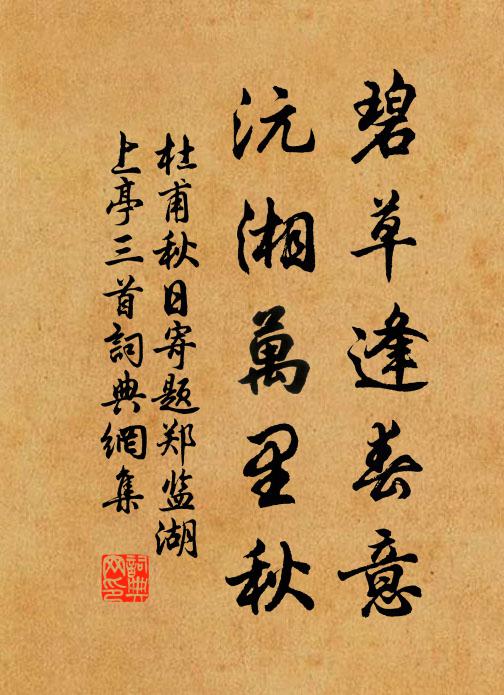 碧草逢春意
沅湘萬里秋
杜甫秋日寄题郑监湖
上亭三首詞典網集
詞典
网印